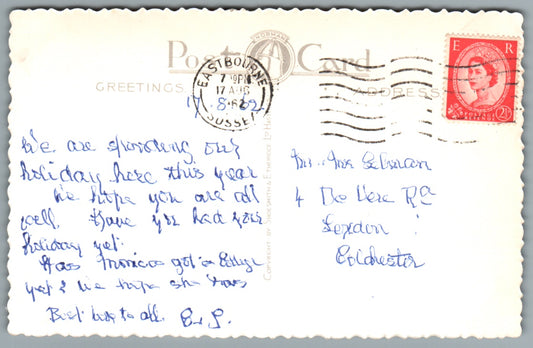 Post Card
GREETINGS
ADDRESS
EASTBOURNE
7 PM
17 AUG
62
SUSSEX
E R
2½
17.8.62
We are spending our
holiday here this year
We hope you are all
well. Have you had your
holiday yet.
Has got a
yet? We hope she has
Best love to all.
Mr. Mrs
4 De Vere Rd
Lexden
Colchester